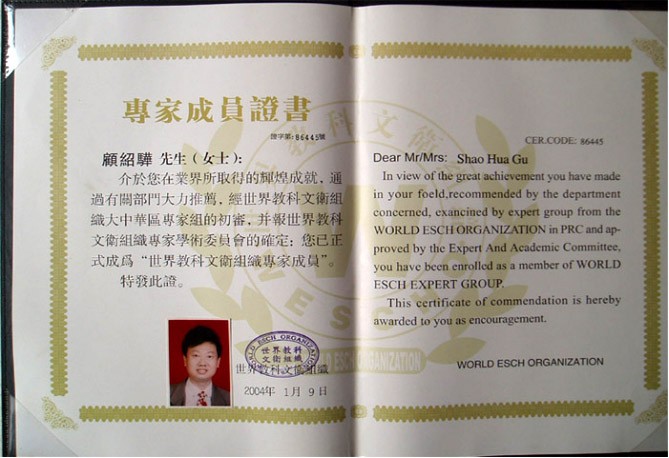 專家成員證書
證字第:86445號
顧紹驊 先生(女士):
介於您在業界所取得的輝煌成就,通
過有關部門大力推薦,經世界教科文衛組
織大中華區專家組的初審,并報世界教科
文衛組織專家學術委員會的確定;您已正
式成爲“世界教科文衛組織專家成員”。
特發此證。
WORLD ESCH ORGANIZATION
世界教科
文衛組織
世界教科文衛組織
2004年 1月 9日
CER.CODE: 86445
Dear Mr/Mrs: Shao Hua Gu
In view of the great achievement you have made
in your foeld,recommended by the department
concerned, exancined by expert group from the
WORLD ESCH ORGANIZATION in PRC and ap-
proved by the Expert And Academic Committee,
you have been enrolled as a member of WORLD
ESCH EXPERT GROUP.
This certificate of commendation is hereby
awarded to you as encouragement.
WORLD ESCH ORGANIZATION
教科文衛
WESCH
WORLD ESCH ORGANIZATION